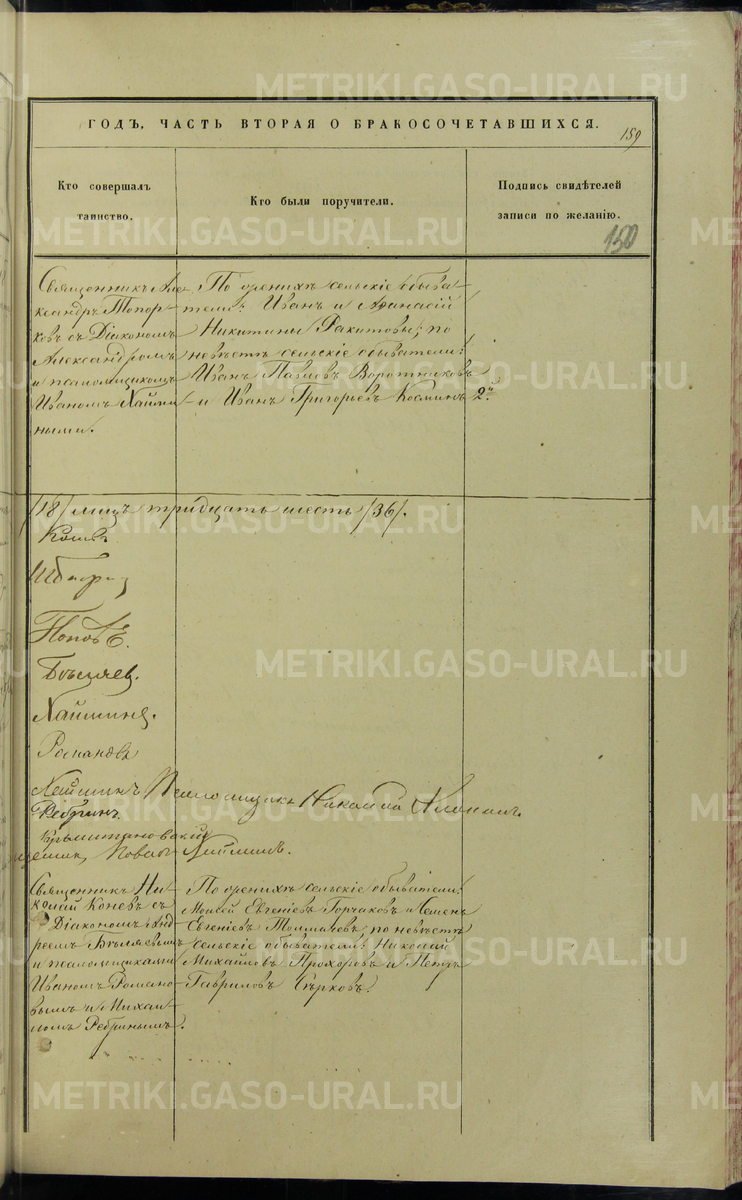 ГОДЪ, ЧАСТЬ ВТОРАЯ О БРАКОСОЧЕТАВШИХСЯ.
159
Кто совершалъ
таинство.
Кто были поручители.
Подпись свидѣтелей
записи по желанію.
150
Священникъ Але-
ксандръ Топор-
ковъ съ Діакономъ
Александромъ
и псаломщикомъ
Иваномъ Хайми-
ными.
По женихѣ сельскіе обыва-
тели: Иванъ и Афанасій
Никитины Ракитовы; по
невѣстѣ сельскіе обыватели:
Иванъ Павловъ Воротниковъ
и Иванъ Григорьевъ Косминъ
2й.
/18/ лицъ тридцать шесть /36/.
Коневъ
Поповъ Е.
Бѣляевъ.
Хайминъ.
Романовъ
Хайминъ Псаломщикъ Николай
Ребринъ.
Хайминъ.
Священникъ Ни-
колай Коневъ съ
Діакономъ Анд-
реемъ Бѣляевымъ
и псаломщиками
Иваномъ Романо-
вымъ и Михаи-
ломъ Ребринымъ.
По женихѣ сельскіе обыватели:
Моисей Евгеніевъ Горчаковъ и Семенъ
Евгеніевъ Толмачевъ; по невѣстѣ
сельскіе обыватели: Николай
Михайловъ Прохоровъ и Петръ
Гавриловъ
METRIKI.GASO-URAL.RU